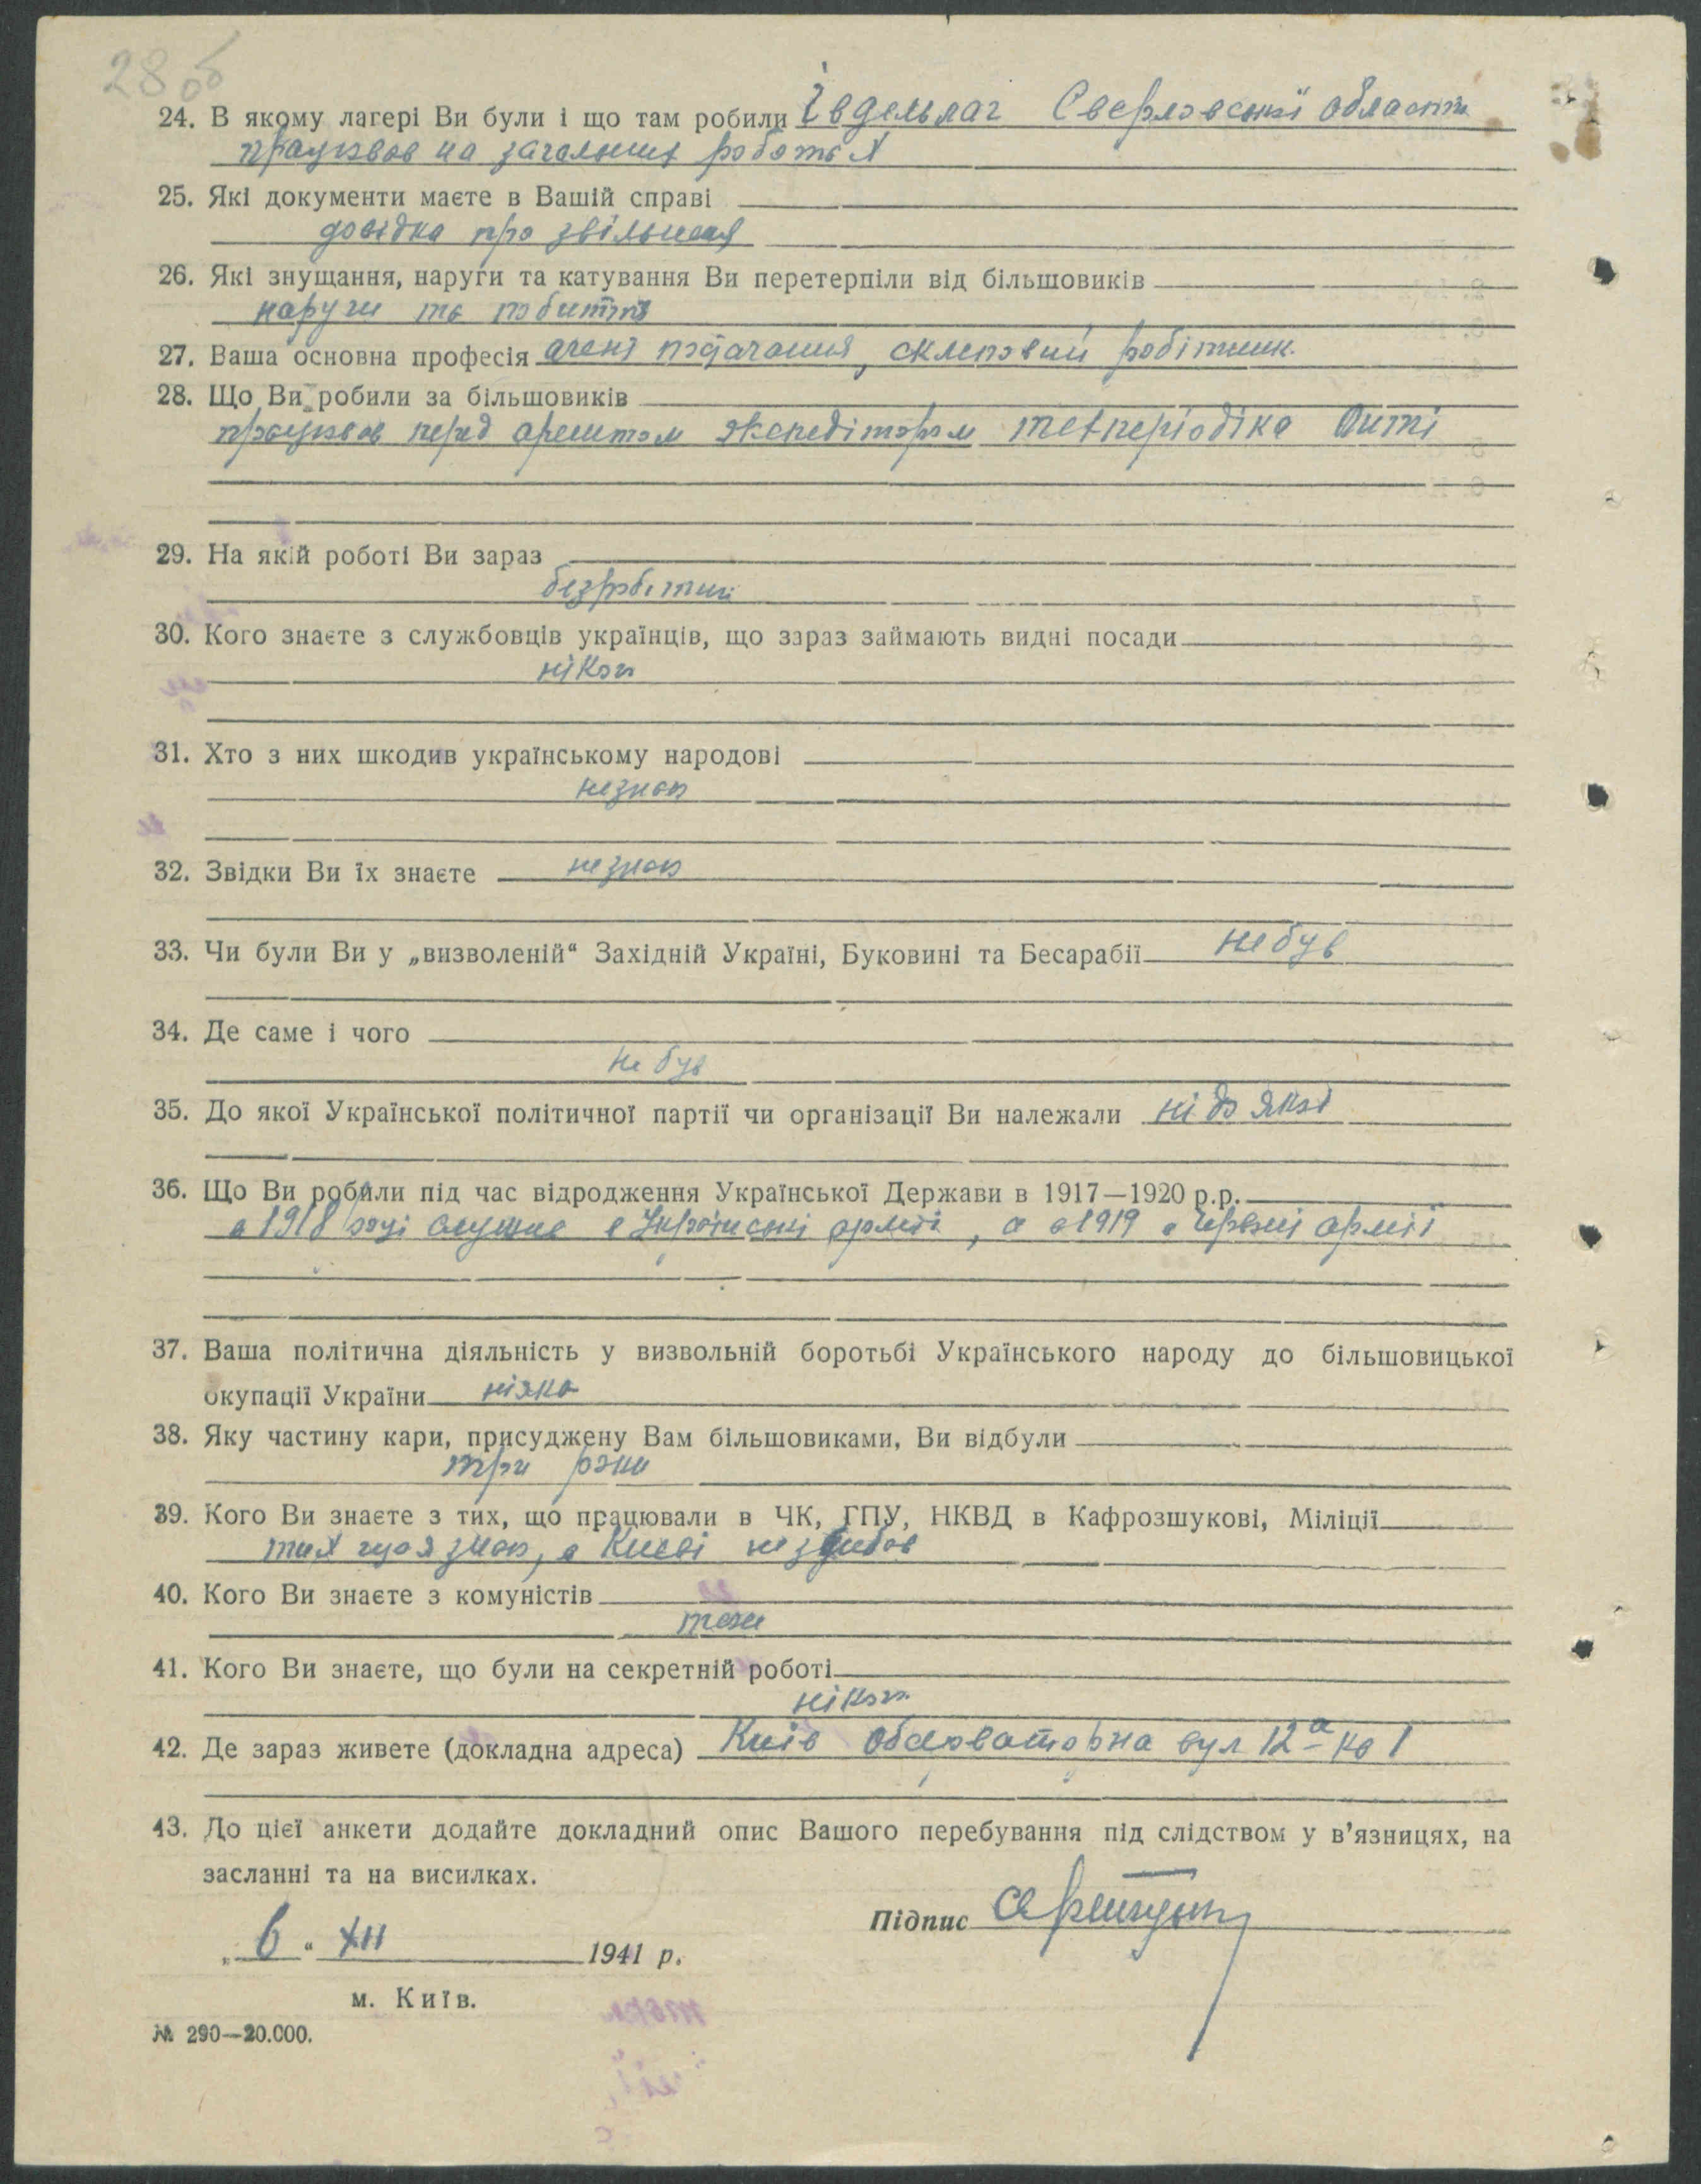 28 об
24. В якому лагері Ви були і що там робили Івдельлаг Сверловської області
працював на загальних роботах
25. Які документи маєте в Вашій справі
довідка про звільненя
26. Які знущання, наруги та катування Ви перетерпіли від більшовиків
наруги та побиття
27. Ваша основна професія агент подачания, склеповий робітник.
28. Що Ви робили за більшовиків
працював перед арештом экспедітором
29. На якій роботі Ви зараз
безробітни
30. Кого знаєте з службовців українців, що зараз займають видні посади
нікого
31. Хто з них шкодив українському народові
незнаю
32. Звідки Ви їх знаєте незнаю
33. Чи були Ви у „визволеній“ Західній Україні, Буковині та Бесарабії небув
34. Де саме і чого
не був
35. До якої Української політичної партії чи організації Ви належали ні до якої
36. Що Ви робили під час відродження Української Держави в 1917—1920 р.р.
в 1918 році служив в Українскі армії, а в 1919 в Червоні армії
37. Ваша політична діяльність у визвольній боротьбі Українського народу до більшовицької
окупації України ніяка
38. Яку частину кари, присуджену Вам більшовиками, Ви відбули
три роки
39. Кого Ви знаєте з тих, що працювали в ЧК, ГПУ, НКВД в Кафрозшукові, Міліції
тих що я знаю, в Києві не здибав
40. Кого Ви знаєте з комуністів
теж
41. Кого Ви знаєте, що були на секретній роботі
нікого
42. Де зараз живете (докладна адреса) Київ Обсерваторна вул 12а кв 1
43. До цієї анкети додайте докладний опис Вашого перебування під слідством у в’язницях, на
засланні та на висилках.
Підпис
„ 6 “ XII 1941 р.
м. Київ.
№ 290—20.000.